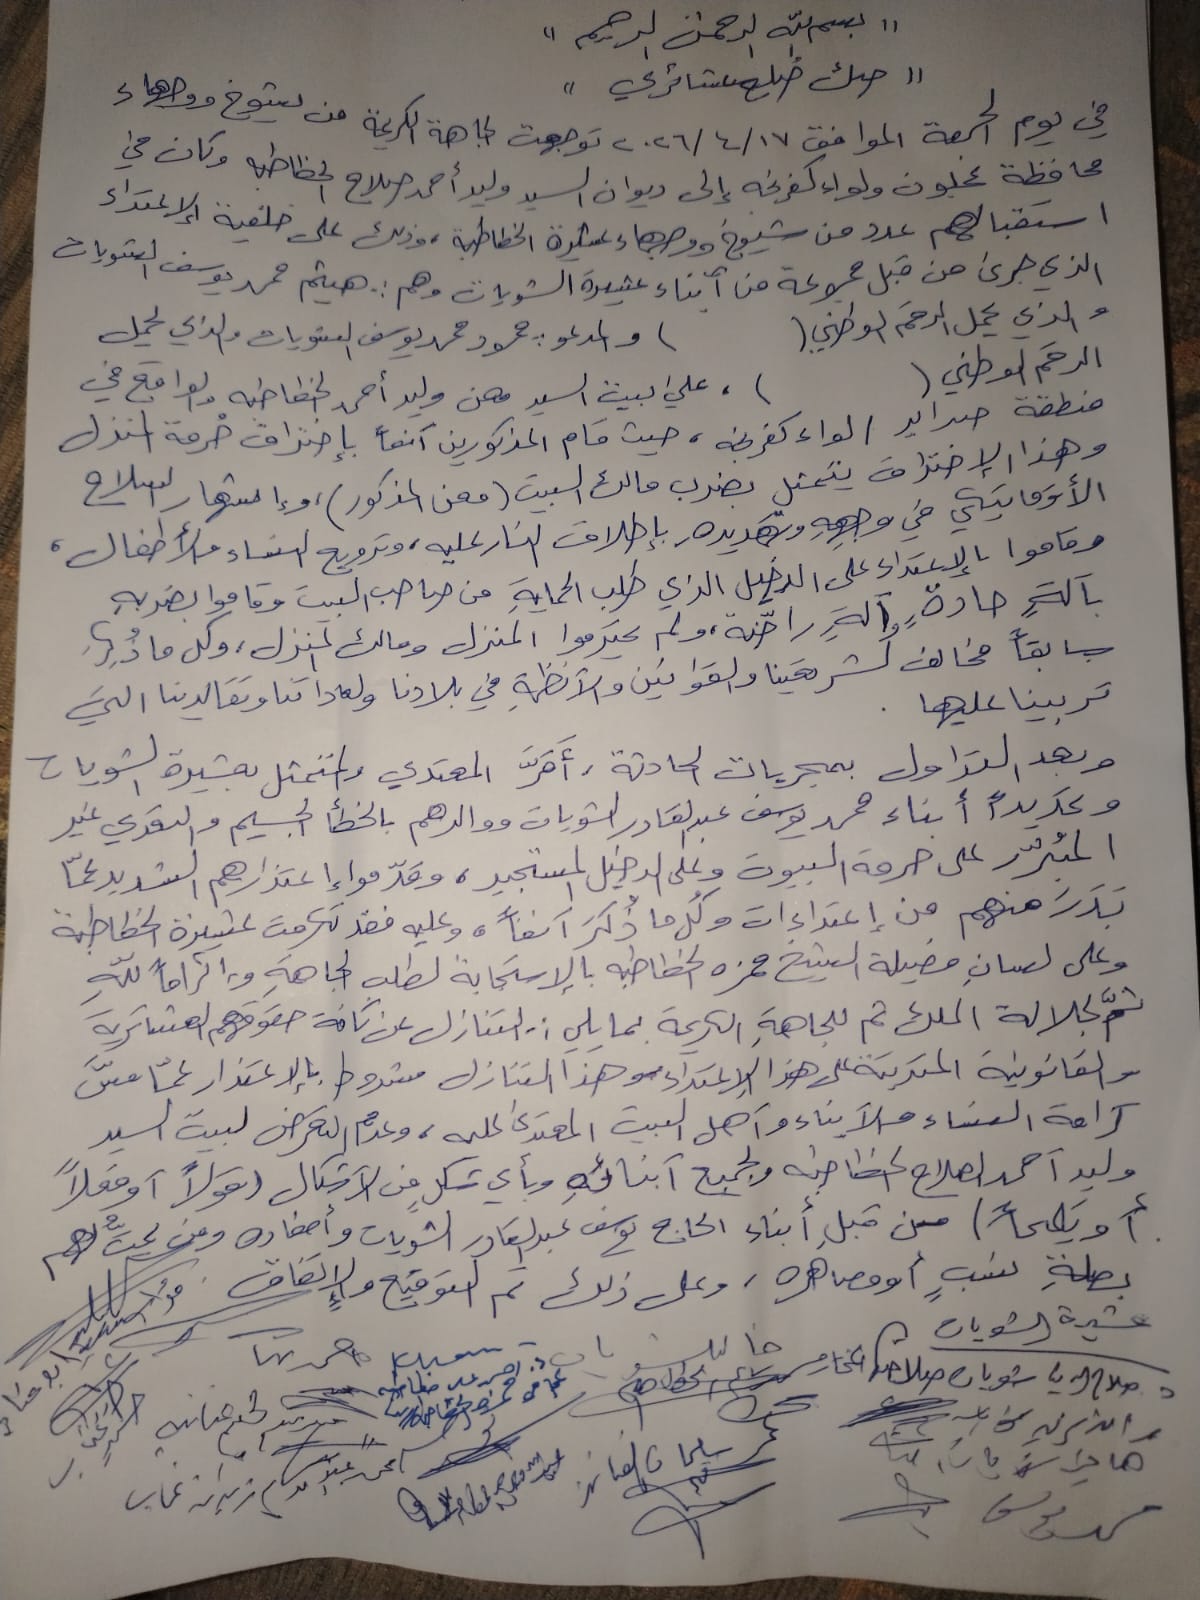 " بسم الله الرحمن الرحيم "
" صك صلح عشائري "
في يوم الجمعة الموافق ٢٠٢٦/٤/١٧ توجهت الجاهة الكريمة من شيوخ ووجهاء
محافظة عجلون ولواء كفرنجه إلى ديوان السيد وليد أحمد صلاح الخطاطبه وكان في
استقبالهم عدد من شيوخ ووجهاء عشيرة الخطاطبة ، وذلك على خلفية الإعتداء
الذي جرى من قبل مجموعة من أبناء عشيرة الشويات وهم :. هيثم محمد يوسف الشويات
والذي يحمل الرقم الوطني ( ) والمدعو :. محمود محمد يوسف الشويات والذي يحمل
الرقم الوطني ( ) ، على بيت السيد معن وليد أحمد الخطاطبه والواقع في
منطقة / لواء كفرنجه ، حيث قام المذكورين آنفاً بإختراق حُرمة المنزل
وهذا الإختراق يتمثل بضرب مالك البيت (معن المذكور) ، وإشهار السلاح
الأتوماتيكي في وجههِ وتهديده بإطلاق النار عليه ، وترويع النساء والأطفال ،
وقاموا بالإعتداء على الدخيل الذي طلب الحمايةِ من صاحب البيت وقاموا بضربهِ
بآلةٍ حادةٍ وآلةٍ راضّة ، ولم يحترموا المنزل ومالك المنزل ، وكل ما ذُكِرَ
سابقاً مخالف لشريعتنا والقوانين والأنظمةِ في بلادنا ولعاداتنا وتقاليدنا التي
تربينا عليها .
وبعد التداول بمجريات الحادثة ، أَقرَّ المعتدي والمتمثل بعشيرة الشويات
وتحديداً أبناء محمد يوسف عبدالقادر الشويات ووالدهم بالخطأ الجسيم والتعدي غير
المُبرّر على حرمة البيوت وعلى الدخيل المستجير ، وقدّموا إعتذارهم الشديد عمّا
بَدَرَ منهم من إعتداءات وكُل ما ذُكَرَ آنفاً ، وعليه فقد تكرمت عشيرة الخطاطبة
وعلى لسانِ فضيلة الشيخ حمزه الخطاطبه بالإستجابة لطلب الجاهةِ وإكراماً للّهِ
ثمَّ لجلالة الملك ثم للجاهةِ الكريمة بما يلي :. التنازل عن كافة حقوقهم العشائرية
والقانونية المترتبة على هذا الإعتداء وهذا التنازل مشروط بالإعتذار عمّا مسَّ
كرامة النساء والأبناء وأهل البيت المعتدى عليه ، وعدم التعرض لبيت السيد
وليد أحمد صلاح الخطاطبه ولجميع أبنائهِ وبأي شكلٍ من الأشكال (قولاً أو فعلاً
أو تلميحاً) من قبلِ أبناء الحاج يوسف عبدالقادر الشويات وأحفاده ومن يمتُّ لهم
بصلةِ نسبٍ أو مصاهره ، وعلى ذلك تم التوقيع والإتفاق .
عشيرة الشويات